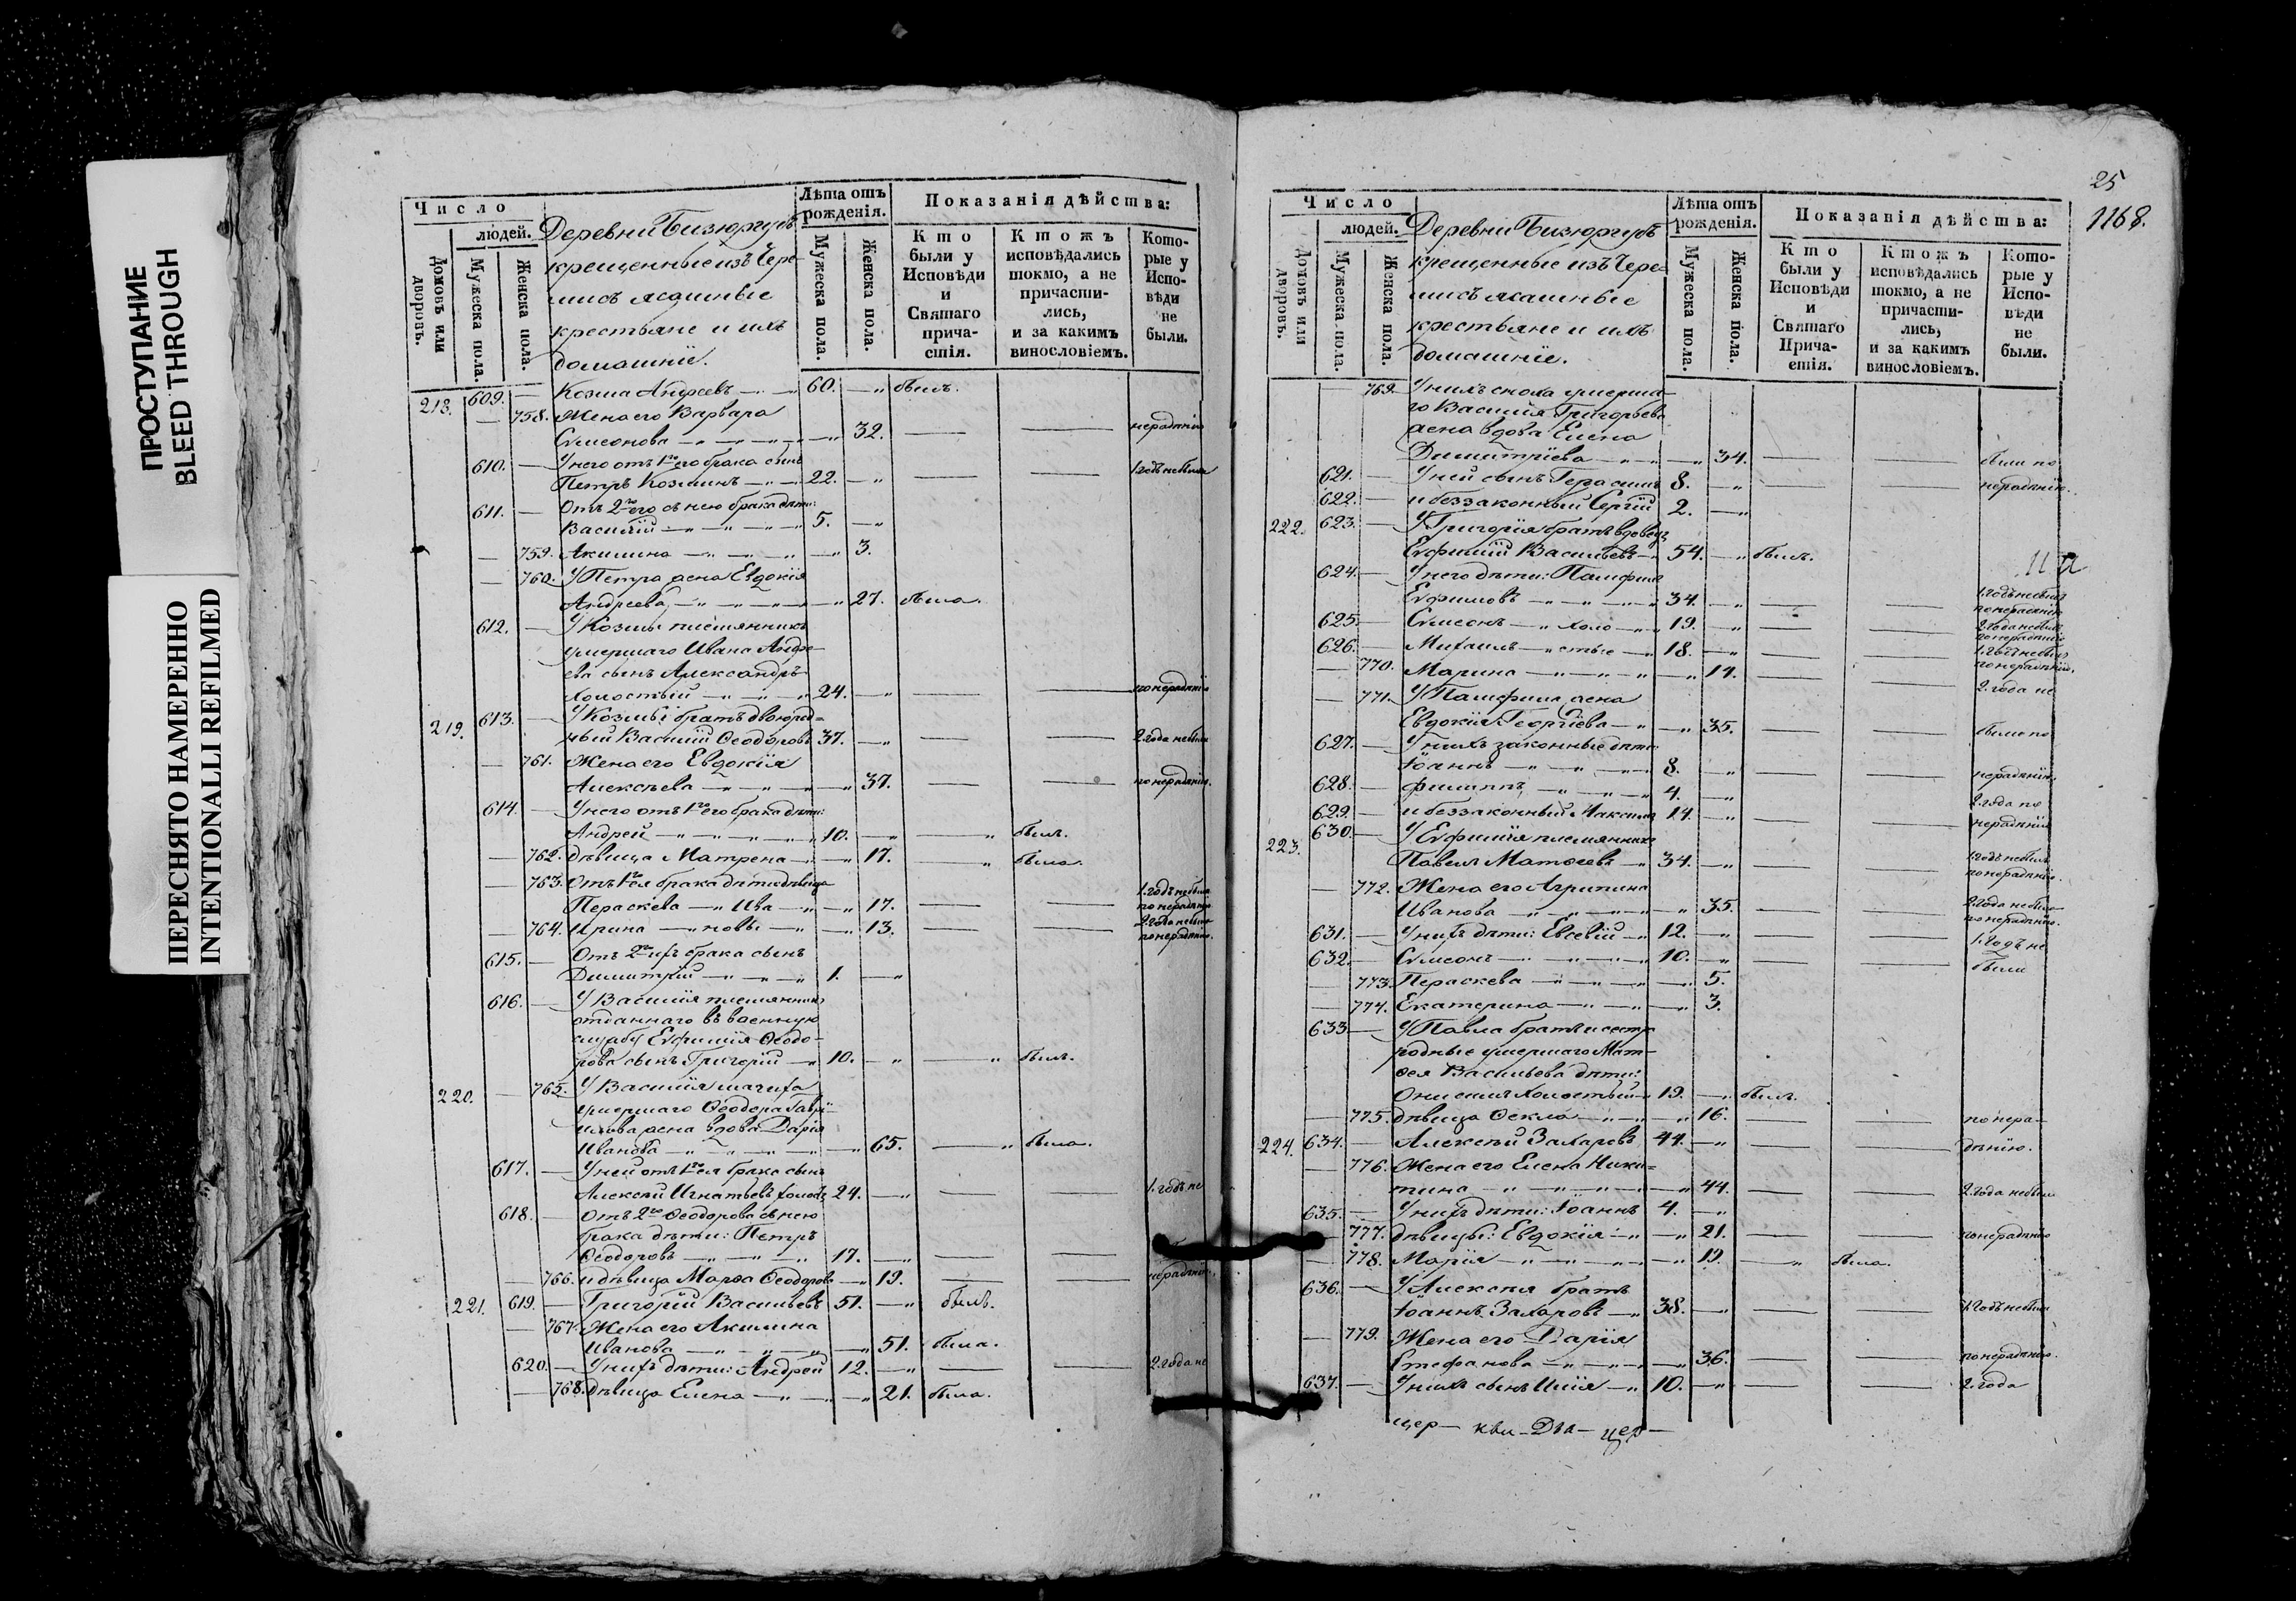 ПРОСТУПАНИЕ
BLEED THROUGH
ПЕРЕСНЯТО НАМЕРЕННО
INTENTIONALLI REFILMED
Число
людей.
Домовъ или дворовъ.
Мужеска пола.
Женска пола.
Деревни Бизюргубъ
крещенные изъ Чере-
мисъ ясашные
крестьяне и ихъ
домашніе.
Лѣта отъ рожденія.
Мужеска пола.
Женска пола.
Показанія дѣйства:
Кто были у Исповѣди и Святаго причастія.
Ктожъ исповѣдались токмо, а не причастились, и за какимъ винословіемъ.
Которые у Исповѣди не были.
218. 609. — Козма Андреевъ — 60. — былъ.
— 758. Жена его Варвара
Симеонова — 32. — нерадѣнію
610. — У него отъ 1го его брака сынъ
Петръ Козминъ — 22. — 1. годъ не были
611. — Отъ 2го его съ нею брака дѣти:
Василій — 5. —
— 759. Акилина — 3.
— 760. У Петра жена Евдокія
Андреева — 27. была.
612. — У Козмы племянникъ
умершаго Ивана Андре-
ева сынъ Александръ
холостый — 24. — по нерадѣнію
219. 613. — У Козмы братъ двоюрод-
ный Василій Ѳеодоровъ 37. — 2. года не были
— 761. Жена его Евдокія
Алексѣева — 37. — по нерадѣнію.
614. — У него отъ 1го его брака дѣти:
Андрей — 10. — былъ.
— 762. дѣвица Матрена — 17. — была.
— 763. Отъ 1го ея брака дѣти дѣвица
Параскева — Ива — 17. — 1. годъ не была по нерадѣнію
— 764. Ирина — новы — 13. — 2. года не была по нерадѣнію.
615. — Отъ 2го ихъ брака сынъ
Димитрій — 1. —
616. — У Василія племянникъ
отданнаго въ военную
службу Евфимія Ѳеодо-
рова сынъ Григорій — 10. — былъ.
220. — 765. У Василія мачиха
умершаго Ѳеодора Гаврі-
илова жена вдова Дарія
Иванова — 65. — была.
617. — У ней отъ 1го ея брака сынъ
Алексѣй Игнатьевъ холостъ 24. — 1. годъ не
618. — Отъ 2го Ѳеодорова съ нею
брака дѣти: Петръ
Ѳеодоровъ — 17. —
— 766. и дѣвица Марѳа Ѳеодорова — 19. — нерадѣнію.
221. 619. — Григорій Васильевъ 51. — былъ.
— 767. Жена его Акилина
Иванова — 51. была.
620. — У нихъ дѣти: Андрей 12. — 2. года не
— 768. Дѣвица Елена — 21. была.
25
1168.
Число
людей.
Домовъ или дворовъ.
Мужеска пола.
Женска пола.
Деревни Бизюргубъ
крещенные изъ Чере-
мисъ ясашные
крестьяне и ихъ
домашніе.
Лѣта отъ рожденія.
Мужеска пола.
Женска пола.
Показанія дѣйства:
Кто были у Исповѣди и Святаго Причастія.
Ктожъ исповѣдались токмо, а не причастились, и за какимъ винословіемъ.
Которые у Исповѣди не были.
— 769. У нихъ сноха умерша-
го Василія Григорьева
жена вдова Елена
Димитріева — 34. — были по
621. — У ней сынъ Герасимъ 8. — нерадѣнію.
622. — и беззаконный Сергій 2. —
222. 623. — У Григорія братъ вдовецъ
Евфимій Васильевъ — 54. — былъ.
624. — У него дѣти: Памфилъ
Евфимовъ — 34. — 1. годъ не былъ по нерадѣнію
625. — Симеонъ — холо — 19. — 2. года не былъ по нерадѣнію
626. — Михаилъ — стые — 18. — 1. годъ не былъ по нерадѣнію.
— 770. Марина — 14. —
— 771. У Памфила жена 2. года не
Евдокія Георгіева — 35. — были по
627. — У нихъ законные дѣти
Іоаннъ — 8. — нерадѣнію.
628. — Филиппъ — 4. —
629. — и беззаконный Максимъ 14. — 2. года по нерадѣнію
223. 630. — У Евфимія племянникъ
Павелъ Матѳеевъ — 34. — 1. годъ не былъ по нерадѣнію.
— 772. Жена его Агрипина
Иванова — 35. — 2. года не была по нерадѣнію.
631. — У нихъ дѣти: Евсевій — 12. — 1. годъ не
632. — Симеонъ — 10. — были
— 773. Параскева — 5.
— 774. Екатерина — 3.
633. — У Павла братъ и сестра
родные умершаго Мат-
ѳея Васильева дѣти:
Онисимъ холостый — 19. — былъ.
— 775. дѣвица Ѳекла — 16. — по нера-
224. 634. — Алексѣй Захаровъ 44. — дѣнію.
— 776. Жена его Елена Ники-
тина — 44. — 2. года не были
635. — У нихъ дѣти: Іоаннъ 4. —
— 777. дѣвицы: Евдокія — 21. — по нерадѣнію
— 778. Марія — 19. — была.
636. — У Алексѣя братъ
Іоаннъ Захаровъ — 38. — 1. годъ не былъ
— 779. Жена его Дарія
Стефанова — 36. — по нерадѣнію.
637. — У нихъ сынъ Илія — 10. — 2. года
цер — кви — Два — цер —